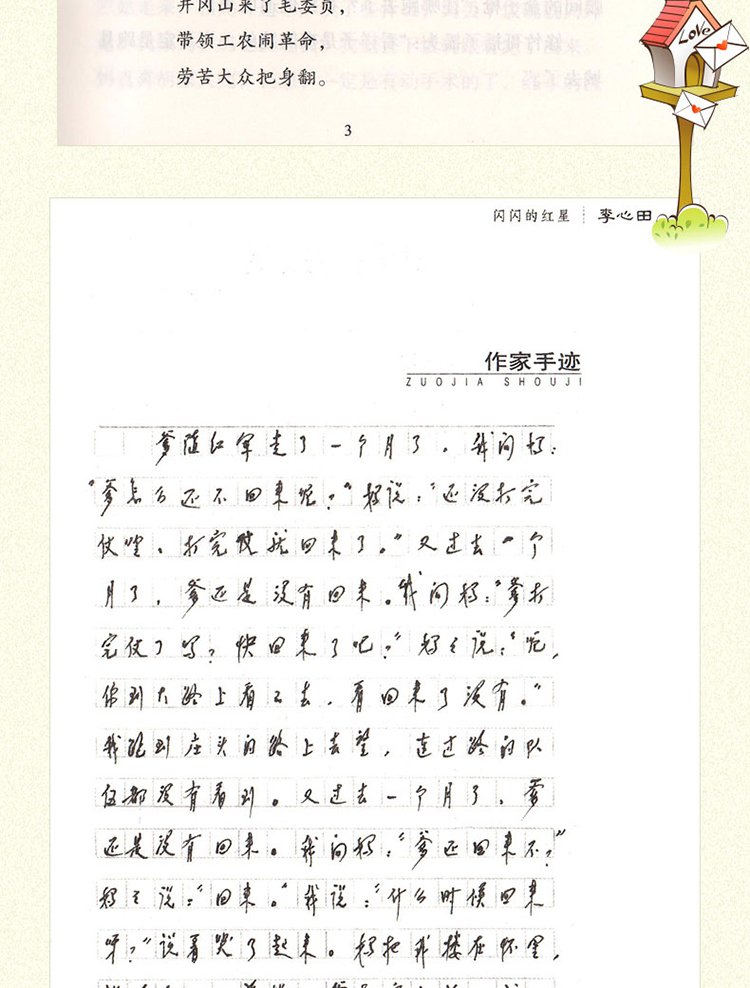 井冈山来了毛委员，
带领工农闹革命，
劳苦大众把身翻。
3
闪闪的红星 李心田
Love
作家手迹
ZUOJIA SHOUJI
爹随红军走了一个月了。我问妈：
“爹怎么还不回来呢？”妈说：“还没打完
仗哩。打完仗就回来了。”又过去一个
月了，爹还是没有回来。我问妈：“爹打
完仗了吗？快回来了吧？”妈又说：“呃，
你到大路上看看去，看回来了没有。”
我跑到庄头的路上去望，连过路的队
伍都没有看到。又过去一个月了，爹
还是没有回来。我问妈：“爹还回来不？”
妈又说：“回来。”我说：“什么时候回来
呀？”说着哭了起来。妈把我搂在怀里，